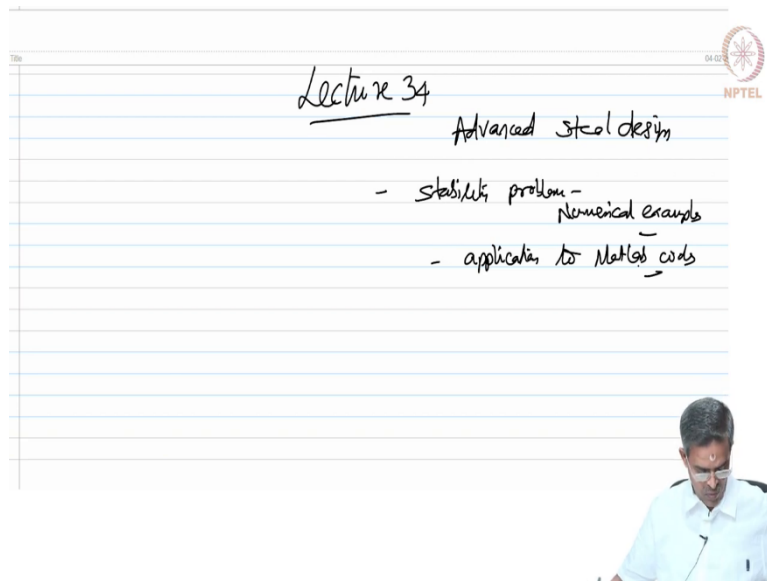 Title
04-02
NPTEL
Lecture 34
Advanced steel design
- stability problem -
Numerical example
- application to Matlab codes